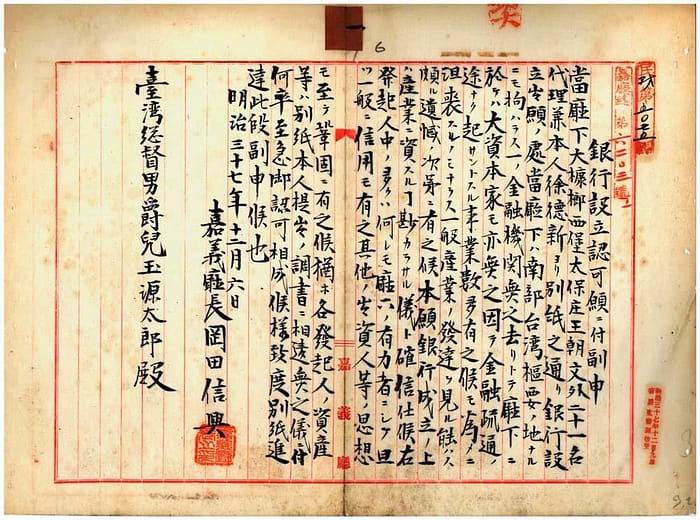 銀行設立認可願ニ付副申
當廳下大糠榔西堡太保庄王朝文外二十一名
代理兼本人徐德新ヨリ別紙之通リ銀行設
立出願ノ處當廳下ハ南部台湾樞要ノ地ナル
ニモ拘ハラス一ノ金融機関無之去リトテ廳下ニ
於テハ大資本家モ亦無之因テ金融疏通ノ
途ナク起サントスル事業数多有之候モ為メニ
沮喪スルノミナラス一般産業ノ發達ヲ見ル能ハス
頗ル遺憾ノ次第ニ有之候本願銀行成立ノ上
ハ産業ニ資スル勘カラサル儀ト確信仕候右
發起人中ノ多クハ何レモ廳下ノ有力者ニシテ且
ツ一般ニ信用モ有之其他ノ出資人等ノ思想
モ至テ鞏固ニ有之候猶ホ各發起人ノ資産
等ハ別紙本人提出ノ調書ニ相違無之儀ニ付
何卒至急御認可相成候様致度別紙進
達此段副申候也
明治三十七年十二月六日
嘉義廳長岡田信興
臺湾総督男爵兒玉源太郎殿
嘉義廳
6